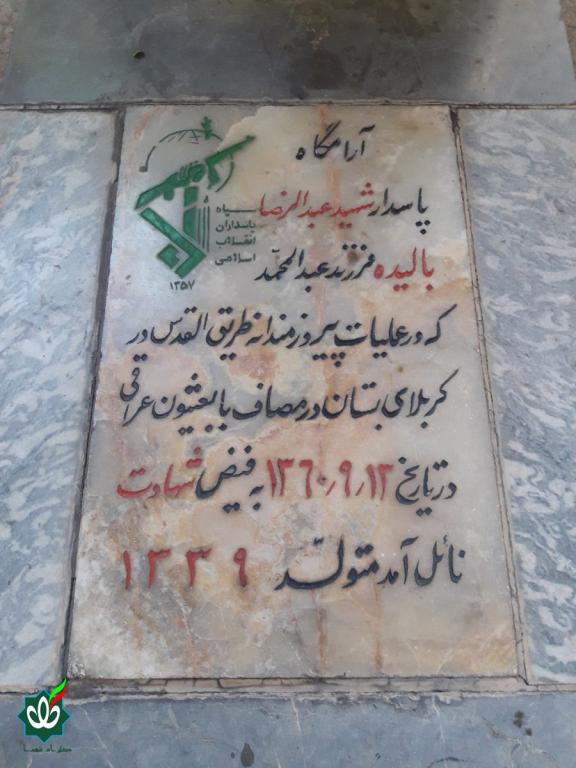 آرامگاه
پاسدار شهید عبدالرضا
بالیده فرزند عبدالمحمّد
که در عملیات پیروزمندانه طریق القدس در
کربلای بستان در مصاف با بعثیون عراقی
در تاریخ ۱۳٫۹٫۱۳۶۰ به فیض شهادت
نائل آمد متولّد ۱۳۳۹
سپاه
پاسداران
انقلاب
اسلامی
۱۳۵۷